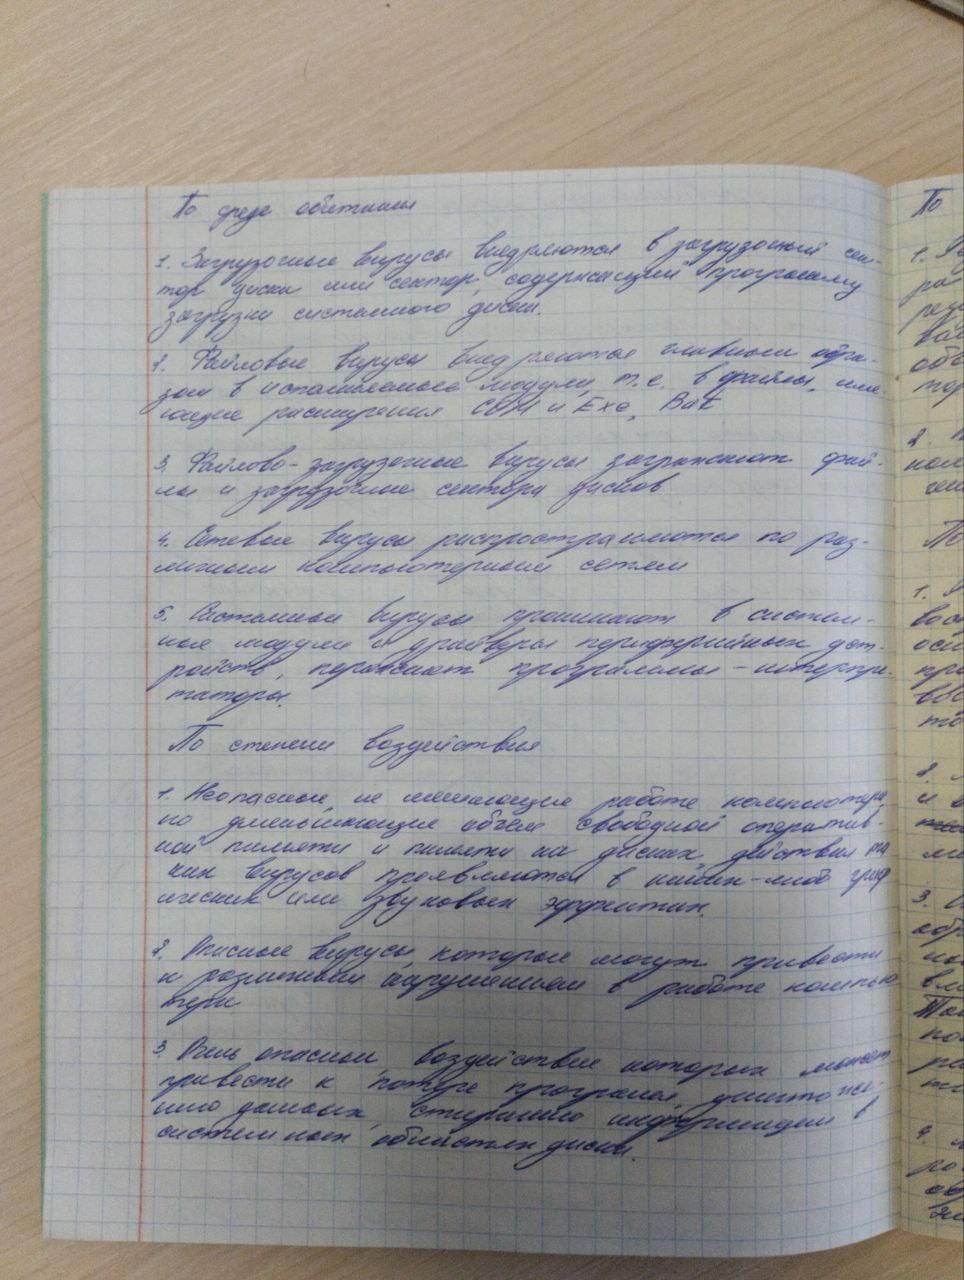 По среде обитания
1. Загрузочные вирусы внедряются в загрузочный сек-
тор диска или сектор, содержащий программу
загрузки системного диска.
2. Файловые вирусы внедряются главным обра-
зом в исполняемые модули, т.е. в файлы, име-
ющие расширения COM и Exe, Bat
3. Файлово-загрузочные вирусы заражают фай-
лы и загрузочные сектора дисков
4. Сетевые вирусы распространяются по раз-
личным компьютерным сетям
5. Системные вирусы проникают в систем-
ные модули и драйверы периферийных уст-
ройств, поражают программы-интерпре-
таторы.
По степени воздействия
1. Неопасные, не мешающие работе компьютера,
но уменьшающие объем свободной оператив-
ной памяти и памяти на дисках, действия та
ких вирусов проявляются в каких-либо граф
ических или звуковых эффектах.
2. Опасные вирусы, которые могут привести
к различным нарушениям в работе компью
тера
3. Очень опасные, воздействие которых может
привести к потере программ, уничтоже-
нию данных, стиранию информации в
системных областях диска.
По
1.
2.
По
1.
3.